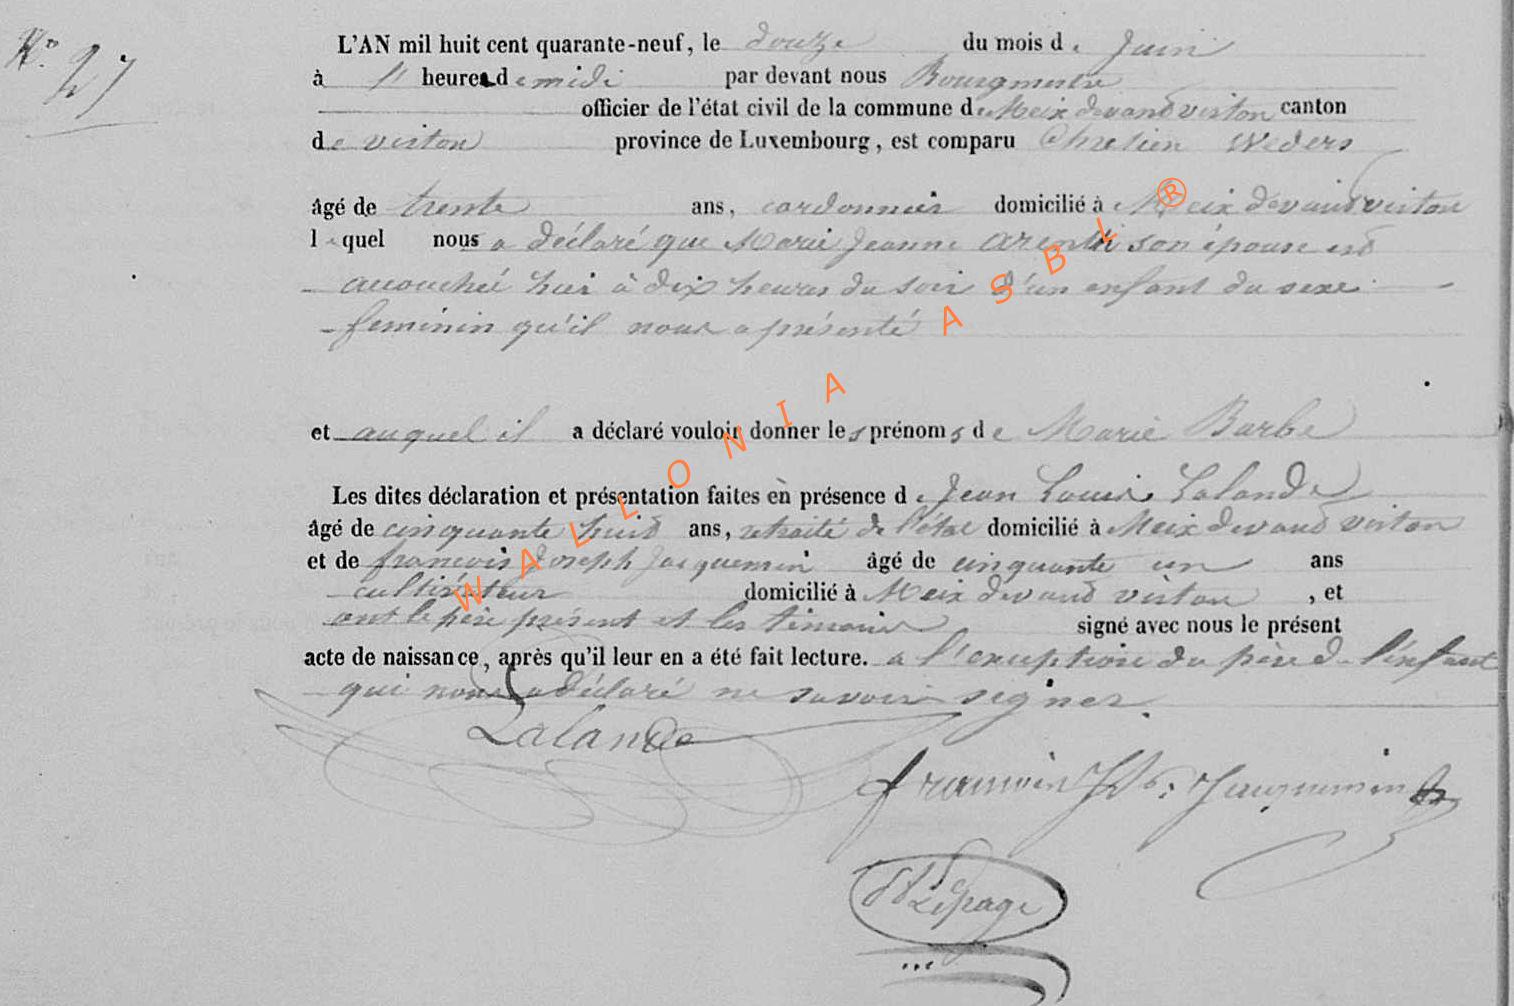 N° 27
L'AN mil huit cent quarante-neuf, le douze du mois de Juin
à 11 heures de midi par devant nous Bourgmestre
officier de l'état civil de la commune de Meix devand virton canton
de virton province de Luxembourg, est comparu Chretien Weders
âgé de trente ans, cordonnier domicilié à Meix devand virton
lequel nous a déclaré que Marie Jeanne son épouse est
accouchée hier à dix heures du soir d'un enfant du sexe
feminin qu'il nous a présenté
et auquel il a déclaré vouloir donner les prénoms de Marie Barbe
Les dites déclaration et présentation faites en présence de Jean Louis Lalande
âgé de cinquante huid ans, retraité de l'état domicilié à Meix devand virton
et de françois Joseph Jacquemin âgé de cinquante un ans
cultivateur domicilié à Meix devand virton, et
ont le père présent et les témoins signé avec nous le présent
acte de naissance, après qu'il leur en a été fait lecture. a l'exception du père d l'enfant
qui nous a déclaré ne savoir signer.
Lalande
françois Jph: Jacquemin
Lepage
WALLONIA ASBL ®